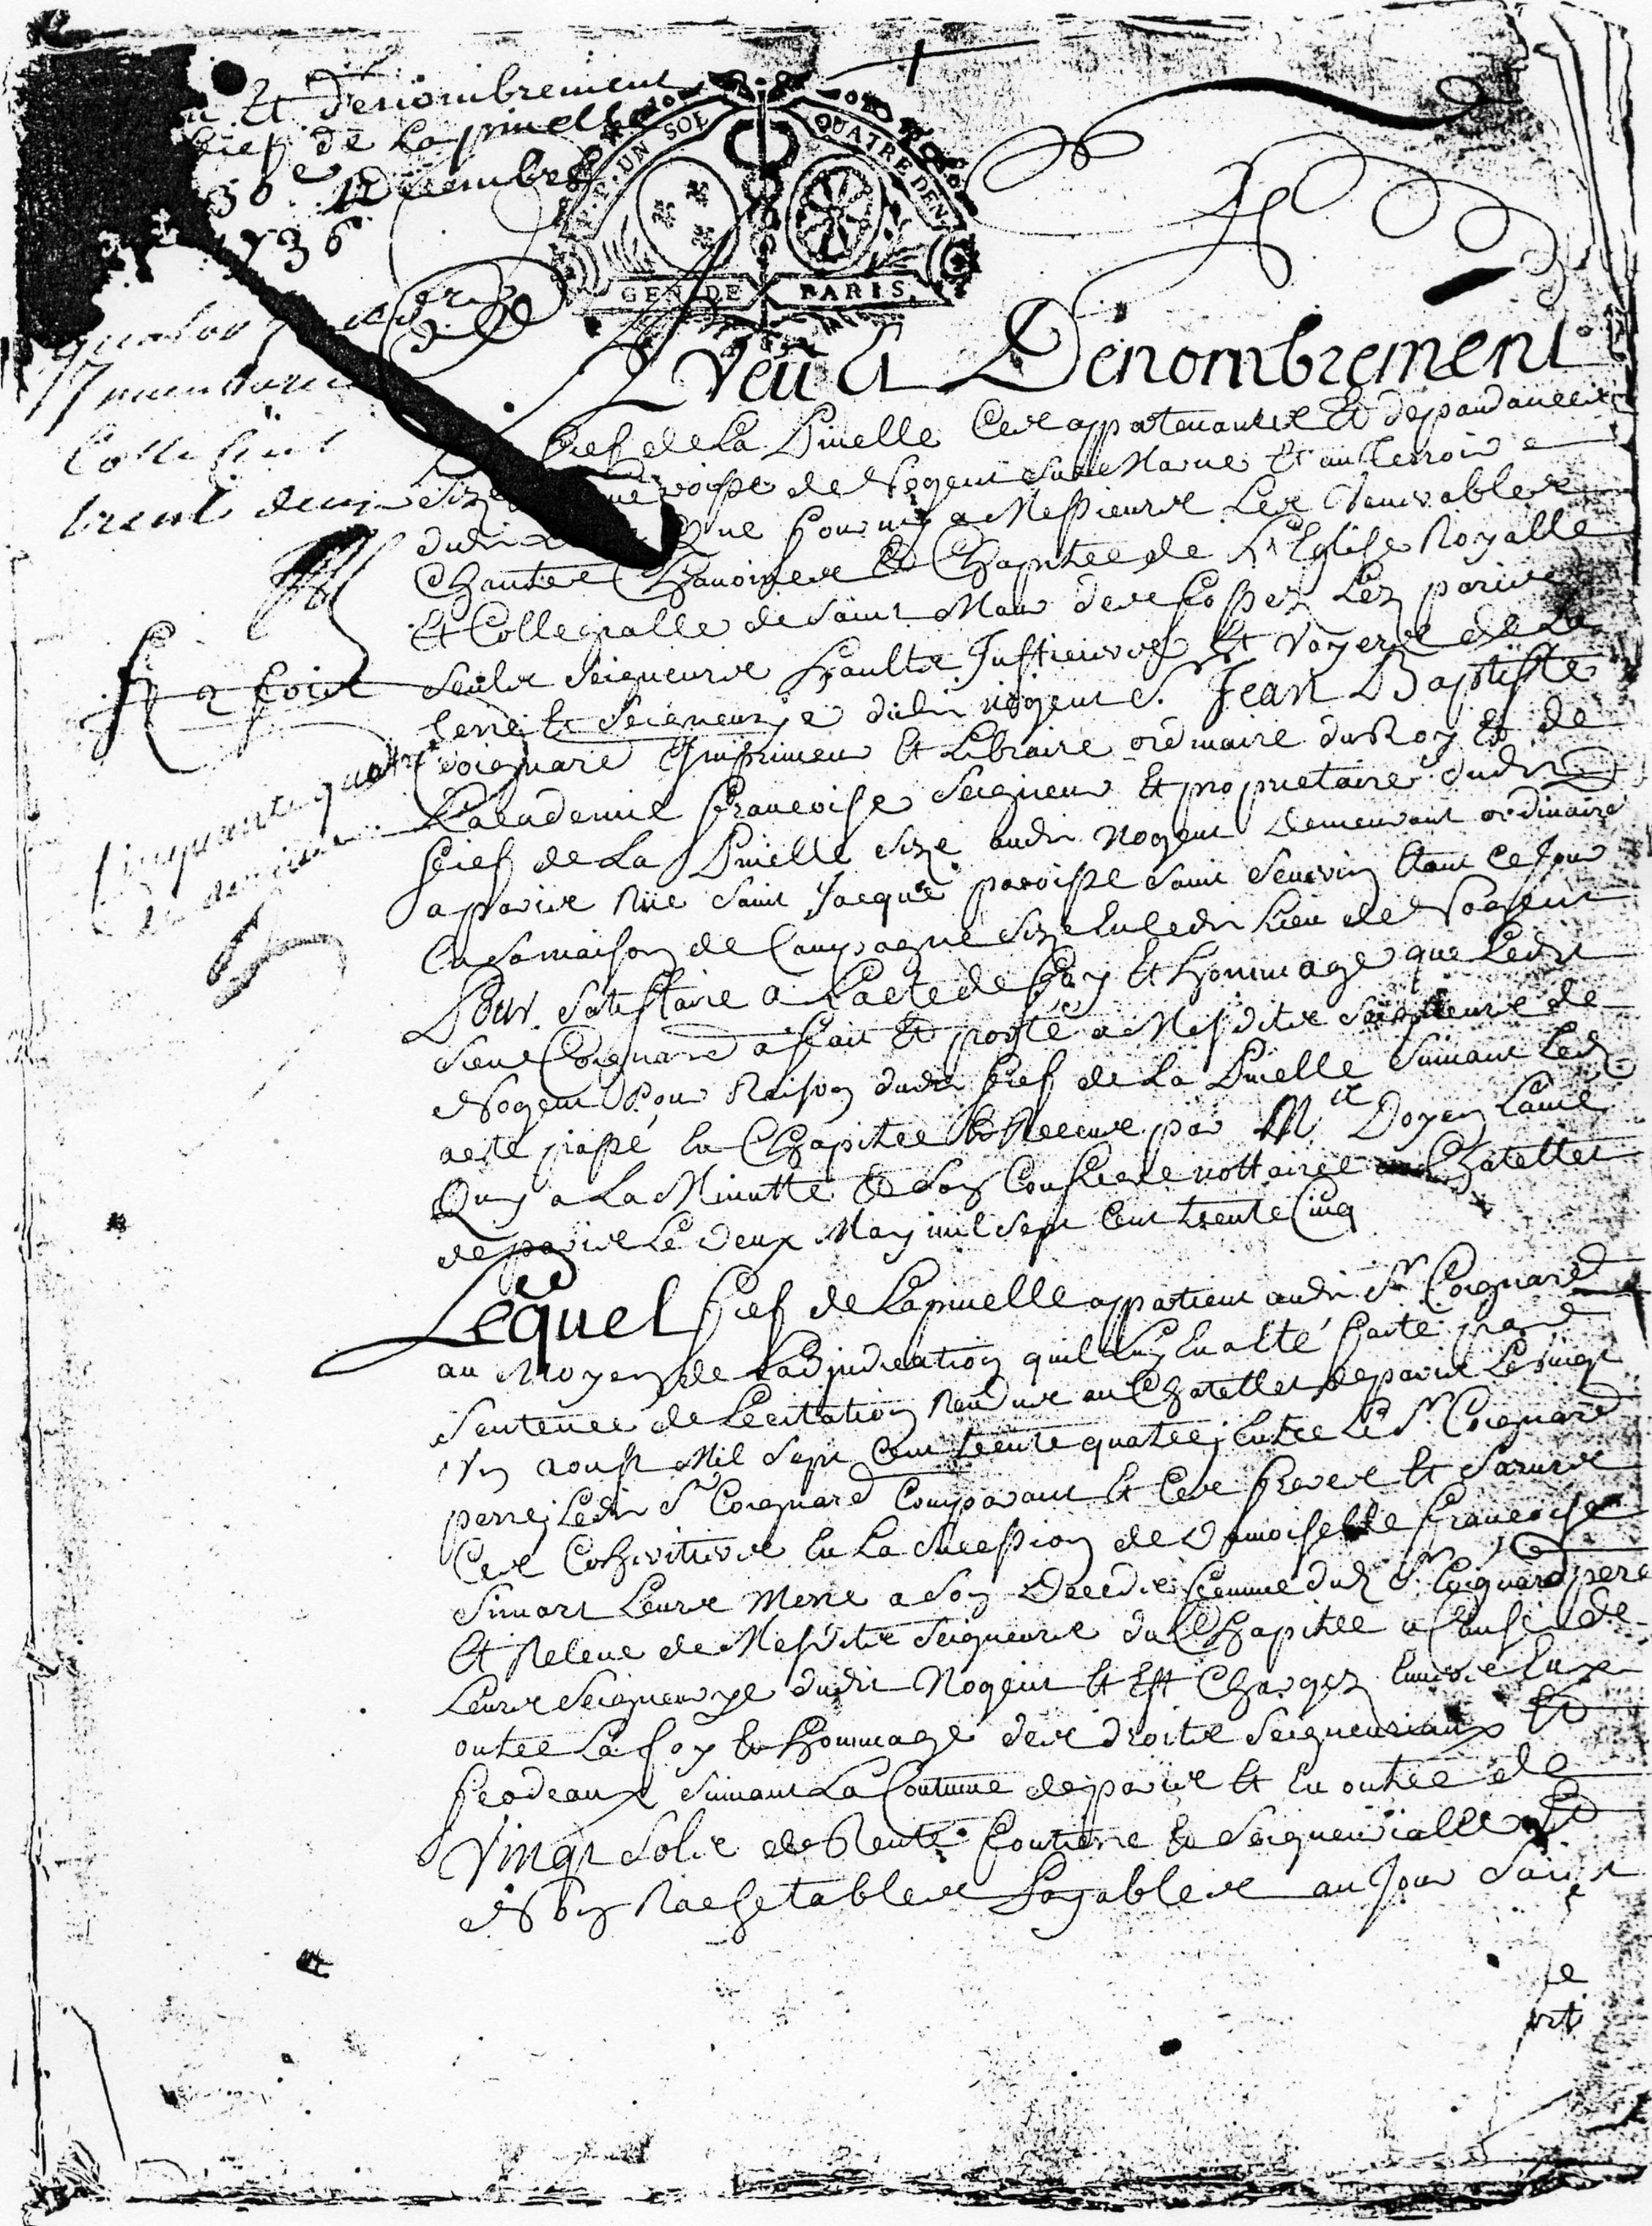 Et denombrement
fief de Lapinelle
30e Decembre
1736
UN SOL QUATRE DEN.
GEN DE PARIS
Aveü Et Denombrement
fief de La Pinelle Ces appartenances Et dependances
size paroisse de Nogent sur Marne Et au terroir
dudit que fournis a Messieurs Les Venerables
Chantre Chanoines Et Chapitre de L'Eglise Royalle
Et Collegialle de Saint Maur des fossez Lez paris
seuls seigneurs haults Justiciers Et Voyers de La
terre Et Seigneurye dudit nogent Sr. Jean Baptiste
Coignard Imprimeur Et Libraire ordinaire du Roy Et de
Lacademie francoise Seigneur Et proprietaire dudit
fief de La Pinelle size audit Nogent demeurant ordinaire
a paris Rüe Saint Jacque paroisse Saint Severin Etant Ce Jour
En sa maison de Campagne size En ledit Lieu de Nogent
Pour satisfaire a Lacte de foy Et hommage que Ledit
sieur Coignard a fait Et porté a Mesdits Seigneurs de
Nogent Pour Raison dudit fief de La Pinelle Suivant Led.
acte passé En Chapitre Et Receu par Me Doyen Lainé
Quy a La Minutte Et Son Confrere nottaires au Chatellet
de paris Le deux May mil sept Cent trente Cinq
Lequel fief de Lapinelle appartient audit Sr. Coignard
au Moyen de Ladjudication quil Luy En a Eté faite par
Sentence de Licitation Rendue au Chatellet de paris Le vingt
Vn aoust Mil Sept Cent trente quatre, Entre Le Sr. Coignard
pere, Ledit Sr Coignard Comparant Et Ces freres Et Sœurs
Ces Cohéritiers En La Succession de Damoiselle francoise
Simart Leurs Mere a Son Deceds femme dud. Sr. Coignard pere
Et Releve de Mesdits Seigneurs du Chapitre a Cause de
Leurs Seigneurye dudit Nogent Et Est Chargez Envers Eux
outre La foy Et hommage des droits Seigneuriaux Et
feodeaux Suivant La Coutume de paris Et En outre de
Vingt Sols de Rente fonciere Et Seigneurialle Et
Non Rachetables Payables au Jour Saint
quatre
Collation
trente deux
R
2 fois
Cinquante quatre